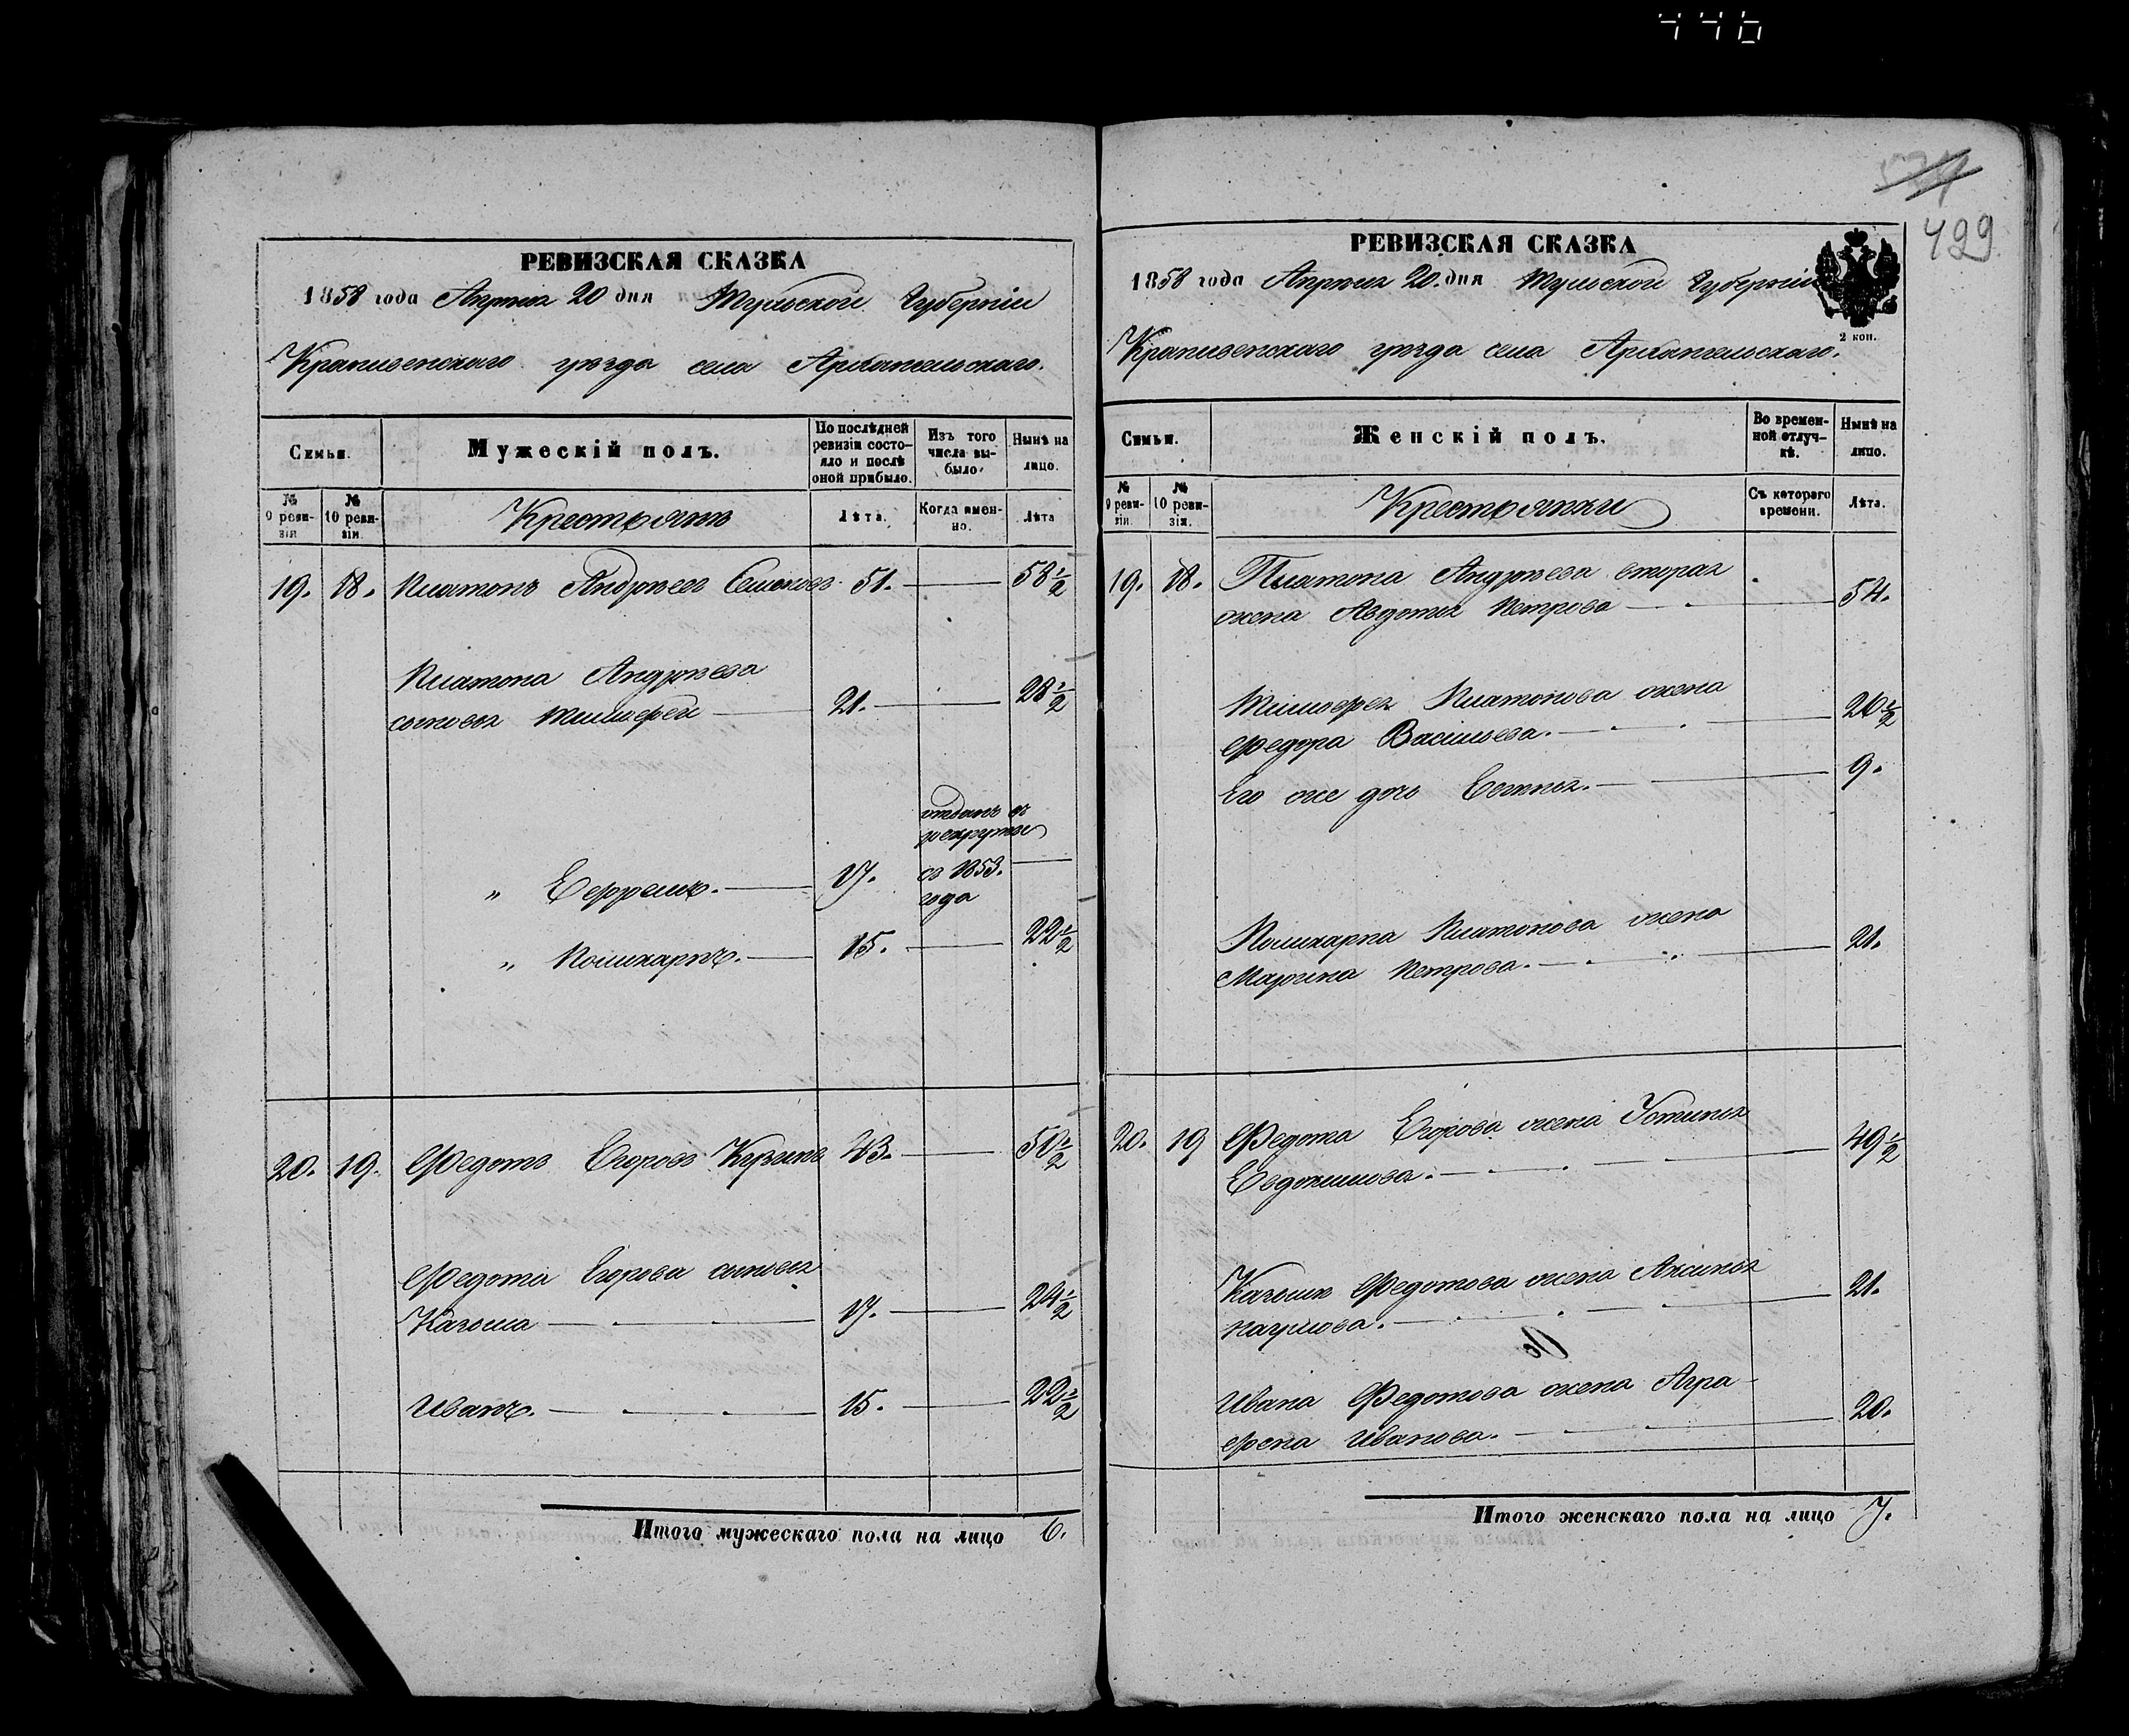 446
РЕВИЗСКАЯ СКАЗКА
1858 года Апрѣля 20 дня Тульской Губерніи
Крапивенскаго уѣзда села Архангельскаго.
Семьи.
Мужескій полъ.
По послѣдней ревизіи состояло и послѣ оной прибыло.
Изъ того числа выбыло
Нынѣ на лицо.
№ 9 ревизіи
№ 10 ревизіи.
Крестьянъ
Лѣта.
Когда именно.
Лѣта
19. 18. Платонъ Андрѣевъ 51. 58½
Платона Андрѣева
сыновья Тимофей 21. 28½
отданъ въ
рекруты
„ Ефремъ. 17. въ 1853.
года
„ Поликарпъ. 15. 22½
20. 19. Федотъ Егоровъ 43. 50½
Федота Егорова сыновья
Казьма 17. 24½
Иванъ. 15. 22½
Итого мужескаго пола на лицо 6.
429
РЕВИЗСКАЯ СКАЗКА
1858 года Апрѣля 20. дня Тульской Губерніи
2 коп.
Крапивенскаго уѣзда села Архангельскаго.
Семьи.
Женскій полъ.
Во временной отлучкѣ.
Нынѣ на лицо.
№ 9 ревизіи.
№ 10 ревизіи.
Крестьянки
Съ котораго времени.
Лѣта.
19. 18. Платона Андрѣева вторая
жена Авдотья Петрова 54.
Тимофея Платонова жена
Федора Васильева. 26½
Его же дочь 9.
Поликарпа Платонова жена
Марина Петрова. 21.
20. 19 Федота Егорова жена Устинья
Евдокимова. 49½
Казьмы Федотова жена Аксинья
21.
Ивана Федотова жена Агра-
фена Иванова. 20.
Итого женскаго пола на лицо 7.